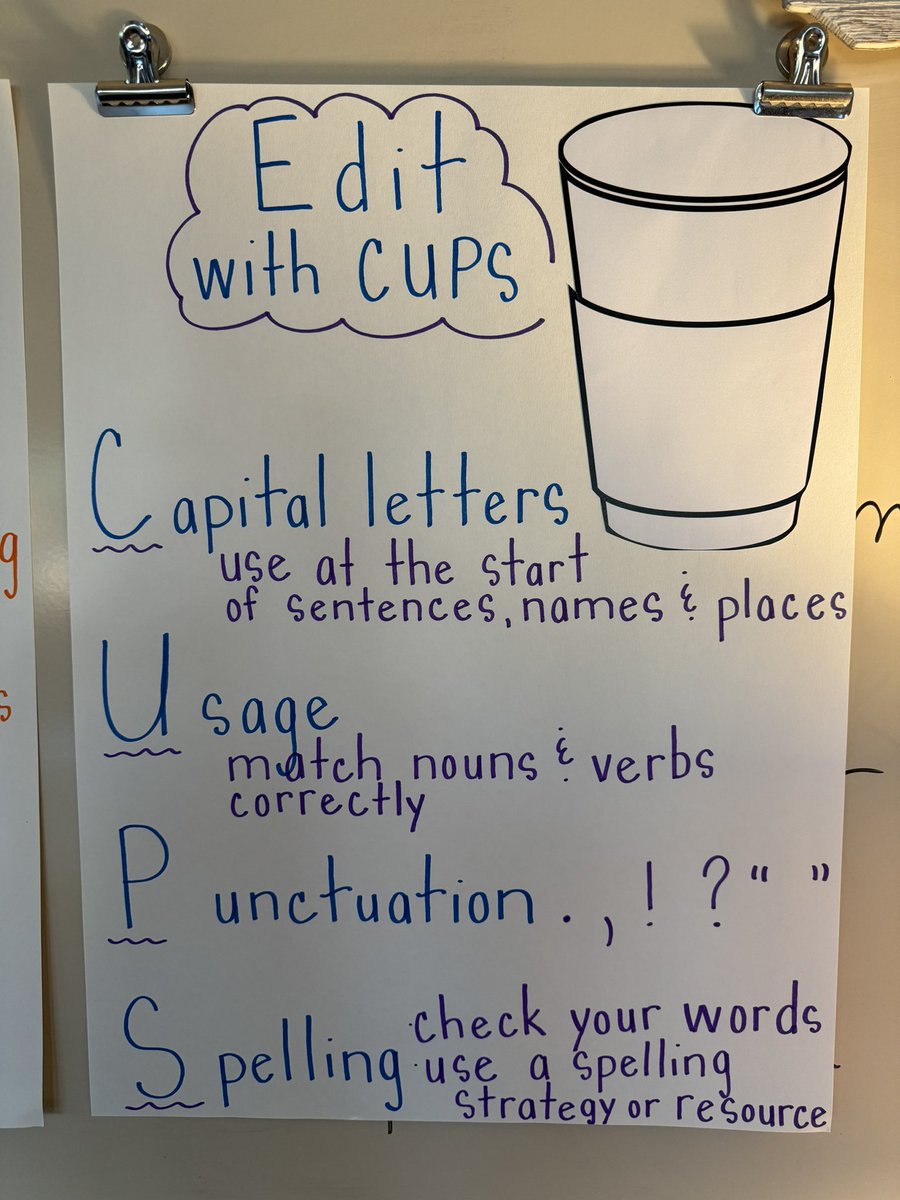 Edit
with CUPS
Capital letters
use at the start
of sentences, names & places
Usage
match nouns & verbs
correctly
Punctuation . , ! ? “ ”
Spelling
· check your words
· use a spelling
strategy or resource
g
s